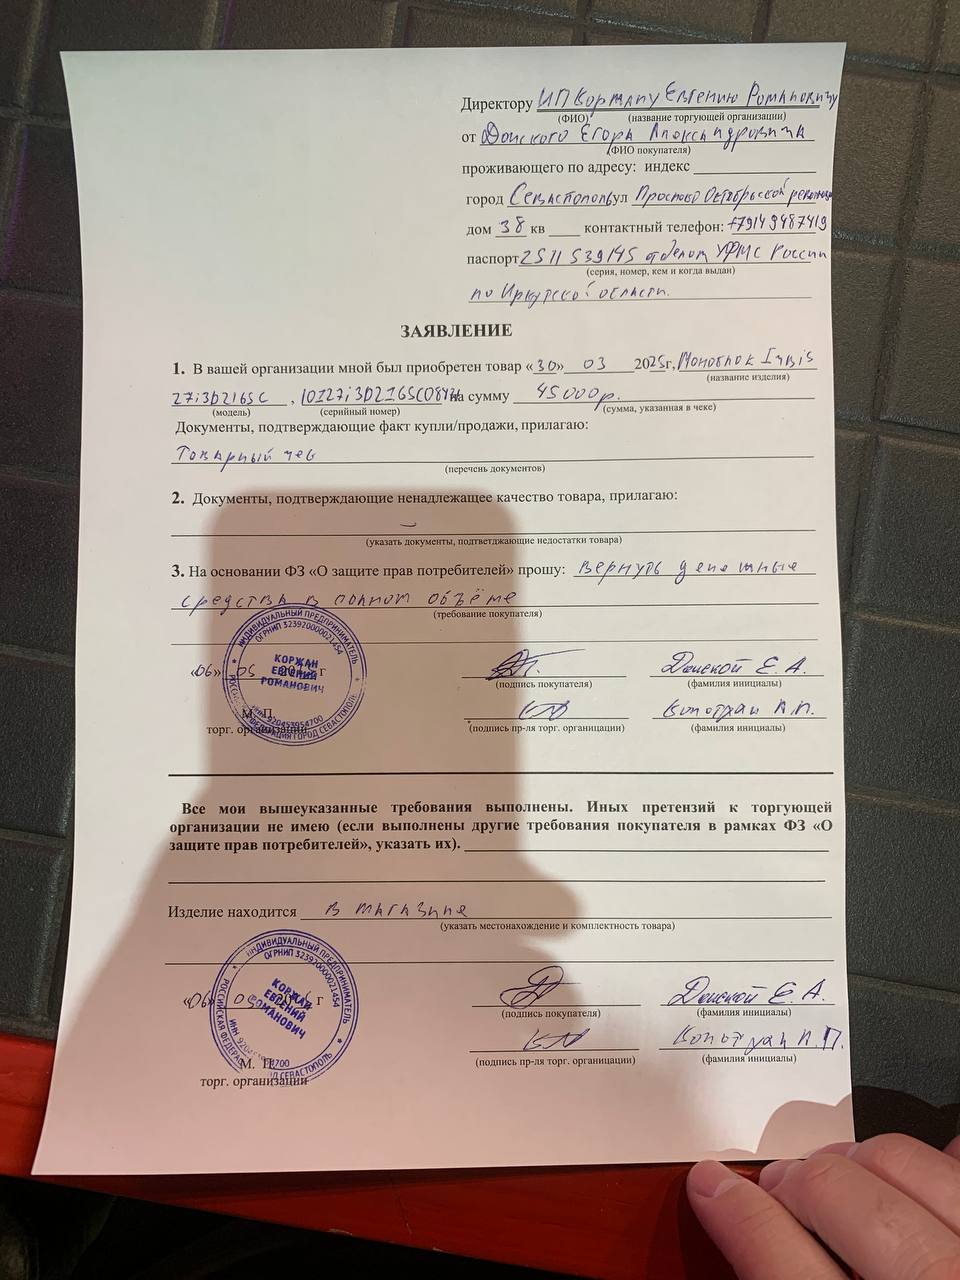 Директору ИП Коржану Евгению Романовичу
(ФИО) (название торгующей организации)
от Донского Егора Александровича
(ФИО покупателя)
проживающего по адресу: индекс
город Севастополь ул Проспект Октябрьской революции
дом 38 кв контактный телефон: +79149487419
паспорт 2511 539145 отделом УФМС России
(серия, номер, кем и когда выдан)
по Иркутской области.
ЗАЯВЛЕНИЕ
1. В вашей организации мной был приобретен товар «30» 03 2025г, Моноблок Irbis
(название изделия)
27i3D216SC , на сумму 45000р.
(модель) (серийный номер) (сумма, указанная в чеке)
Документы, подтверждающие факт купли/продажи, прилагаю:
Товарный чек
(перечень документов)
2. Документы, подтверждающие ненадлежащее качество товара, прилагаю:
—
(указать документы, подтветджающие недостатки товара)
3. На основании ФЗ «О защите прав потребителей» прошу: вернуть денежные
средства в полном объёме
(требование покупателя)
ИНДИВИДУАЛЬНЫЙ ПРЕДПРИНИМАТЕЛЬ
ОГРНИП 323920000021454
КОРЖАН
ЕВГЕНИЙ
РОМАНОВИЧ
ИНН 920453954700
РОССИЙСКАЯ ФЕДЕРАЦИЯ ГОРОД СЕВАСТОПОЛЬ
«06» 05 г Донской Е. А.
(подпись покупателя) (фамилия инициалы)
М. П.
торг. организации (подпись пр-ля торг. органицации) (фамилия инициалы)
Все мои вышеуказанные требования выполнены. Иных претензий к торгующей
организации не имею (если выполнены другие требования покупателя в рамках ФЗ «О
защите прав потребителей», указать их).
Изделие находится в магазине
(указать местонахождение и комплектность товара)
ИНДИВИДУАЛЬНЫЙ ПРЕДПРИНИМАТЕЛЬ
ОГРНИП 323920000021454
КОРЖАН
ЕВГЕНИЙ
РОМАНОВИЧ
РОССИЙСКАЯ ФЕДЕРАЦИЯ
«06» г Донской Е. А.
(подпись покупателя) (фамилия инициалы)
М. П.
торг. организации (подпись пр-ля торг. органицации) (фамилия инициалы)